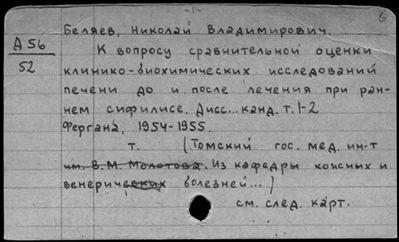 -1-
б
Беляев, Николай Владимирович.
А 56
52
К вопросу сравнительной оценки
клинико-биохимических исследований
печени до и после лечения при ран-
нем сифилисе. Дисс... канд. т. 1-2
Фергана, 1954-1955.
т. (Томский гос. мед. ин-т
им. В. М. Молотова. Из кафедры кожных и
венерических болезней...)
см. след. карт.